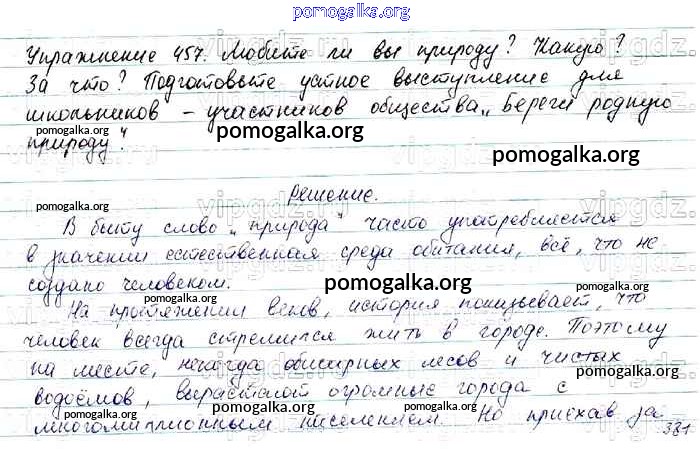 pomogalka.org
Упражнение 457. Любите ли вы природу? Какую?
За что? Подготовьте устное выступление для
школьников – участников общества „Береги родную
природу".
Решение.
В быту слово „природа" часто употребляется
в значении естественная среда обитания, всё, что не
создано человеком.
На протяжении веков, история показывает, что
человек всегда стремился жить в городе. Поэтому
на месте, некогда обширных лесов и чистых
водоёмов, вырастают огромные города с
многомиллионным населением. Но приехав за
381
pomogalka.org
pomogalka.org
pomogalka.org
pomogalka.org
pomogalka.org
pomogalka.org
pomogalka.org
pomogalka.org
pomogalka.org
pomogalka.org
pomogalka.org